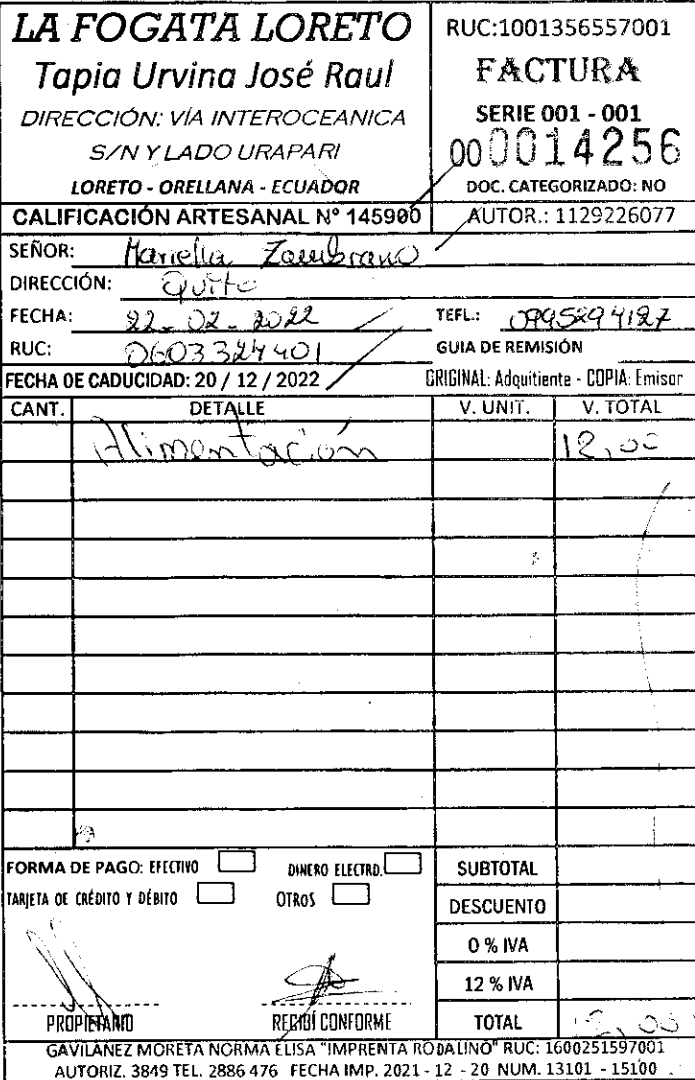 LA FOGATA LORETO
Tapia Urvina José Raul
DIRECCIÓN: VÍA INTEROCEANICA
S/N Y LADO URAPARI
LORETO - ORELLANA - ECUADOR
CALIFICACIÓN ARTESANAL Nº 145900
RUC:1001356557001
FACTURA
SERIE 001 - 001
000014256
DOC. CATEGORIZADO: NO
AUTOR.: 1129226077
SEÑOR: Mariella Zambrano
DIRECCIÓN: Quito
FECHA: 22-02-2022 TEFL.: 0995294127
RUC: 0603324401 GUIA DE REMISIÓN
FECHA DE CADUCIDAD: 20 / 12 / 2022 ORIGINAL: Adquitiente - COPIA: Emisor
CANT. DETALLE V. UNIT. V. TOTAL
Alimentación 12,00
FORMA DE PAGO: EFECTIVO DINERO ELECTRO. SUBTOTAL
TARJETA DE CRÉDITO Y DÉBITO OTROS DESCUENTO
0 % IVA
12 % IVA
PROPIETARIO RECIBÍ CONFORME TOTAL 12,00
GAVILANEZ MORETA NORMA ELISA "IMPRENTA RODALINO" RUC: 1600251597001
AUTORIZ. 3849 TEL. 2886 476 FECHA IMP. 2021 - 12 - 20 NUM. 13101 - 15100